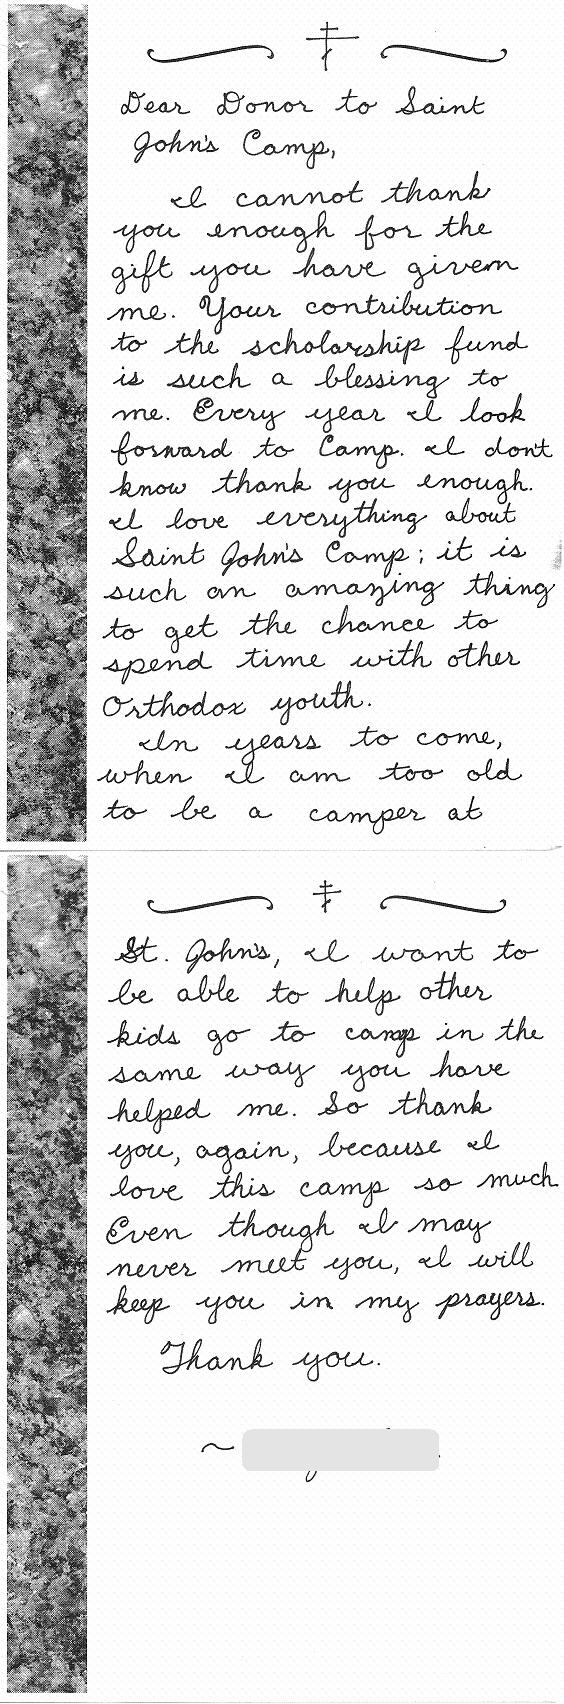 Dear Donor to Saint
John's Camp,
I cannot thank
you enough for the
gift you have given
me. Your contribution
to the scholarship fund
is such a blessing to
me. Every year I look
forward to Camp. I don't
know thank you enough.
I love everything about
Saint John's Camp; it is
such an amazing thing
to get the chance to
spend time with other
Orthodox youth.
In years to come,
when I am too old
to be a camper at
St. John's, I want to
be able to help other
kids go to camp in the
same way you have
helped me. So thank
you, again, because I
love this camp so much.
Even though I may
never meet you, I will
keep you in my prayers.
Thank you.
~